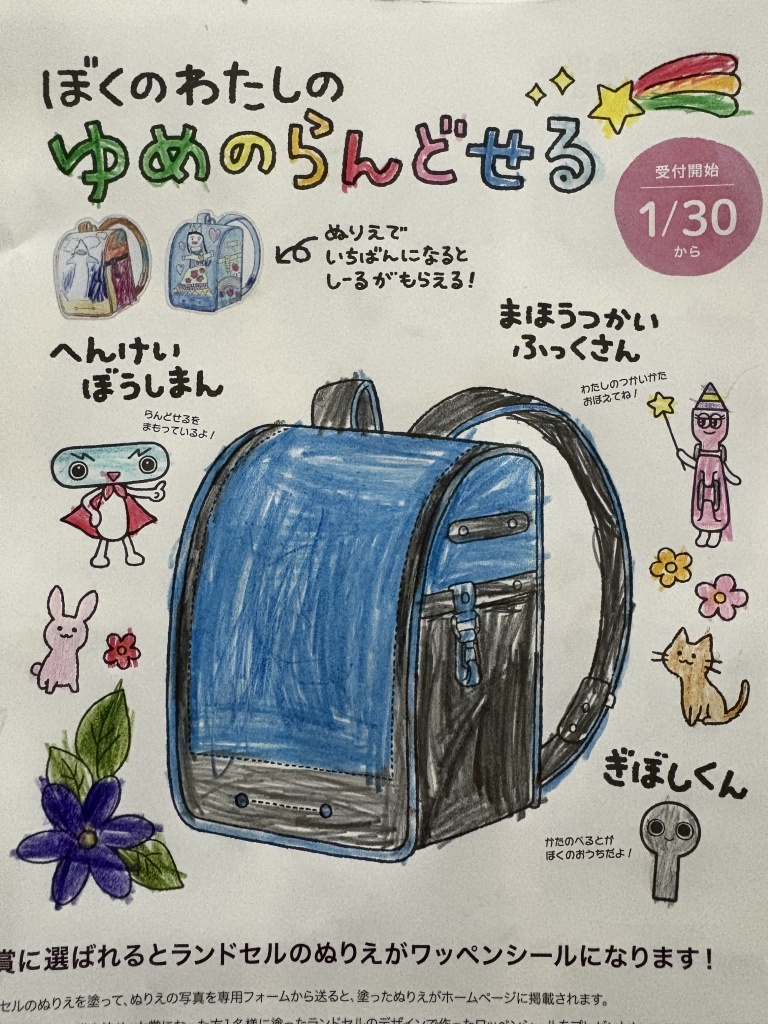 ぼくのわたしの
ゆめのらんどせる
受付開始
1/30
から
ぬりえで
いちばんになると
しーるがもらえる!
まほうつかい
ふっくさん
わたしのつかいかた
おぼえてね!
へんけい
ぼうしまん
らんどせるを
まもっているよ!
ぎぼしくん
かたのべるとが
ぼくのおうちだよ!
賞に選ばれるとランドセルのぬりえがワッペンシールになります!
セルのぬりえを塗って、ぬりえの写真を専用フォームから送ると、塗ったぬりえがホームページに掲載されます。